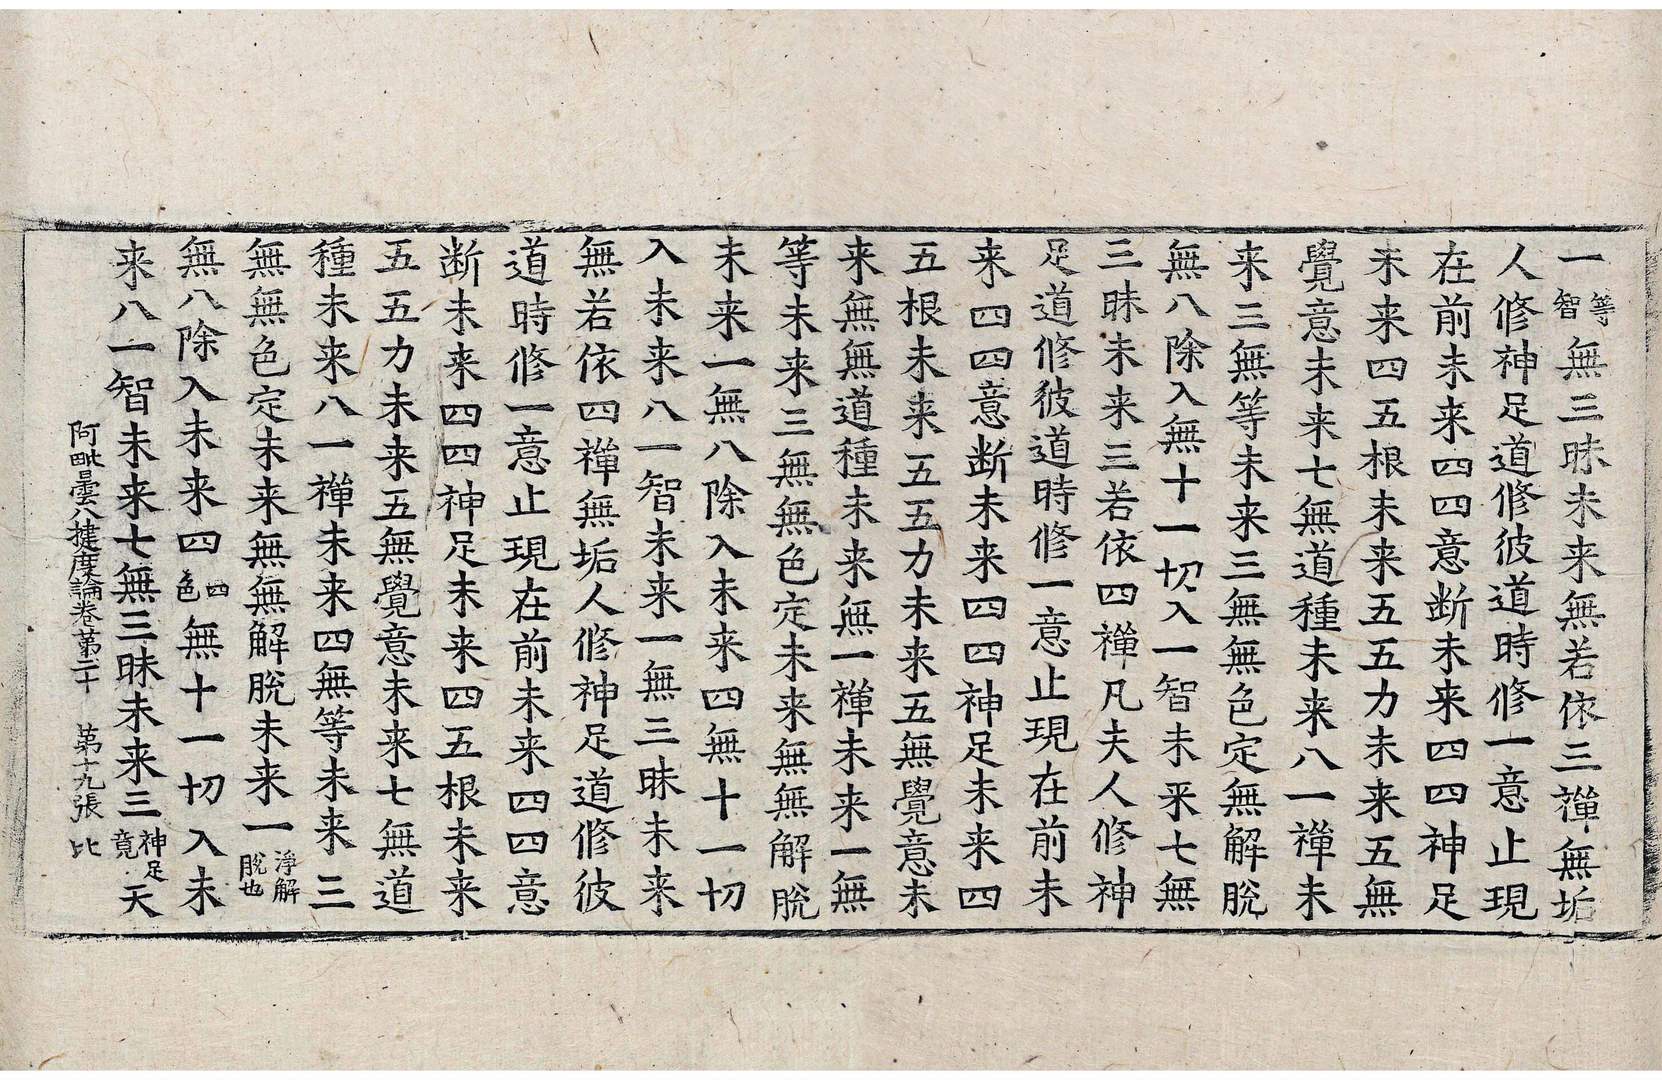 一等智無三昧未来無若依三禪無垢
人修神足道修彼道時修一意止現
在前未来四四意断未来四四神足
未来四五根未来五五力未来五無
覺意未来七無道種未来八一禪未
来三無等未来三無無色定無解脫
無八除入無十一切入一智未来七無
三昧未来三若依四禪凡夫人修神
足道修彼道時修一意止現在前未
来四四意断未来四四神足未来四
五根未来五五力未来五無覺意未
来無無道種未来無一禪未来一無
等未来三無無色定未来無無解脫
未来一無八除入未来四無十一切
入未来八一智未来一無三昧未来
無若依四禪無垢人修神足道修彼
道時修一意止現在前未来四四意
断未来四四神足未来四五根未来
五五力未来五無覺意未来七無道
種未来八一禪未来四無等未来三
無無色定未来無無解脫未来一淨解脫也
無八除入未来四四色無十一切入未
来八一智未来七無三昧未来三神足竟天
阿毗曇八揵度論卷第二十　第十九張　比